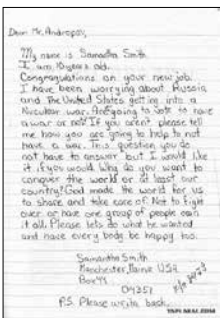 Dear Mr. Andropov,
My name is Samantha Smith.
I am 10 years old.
Congragulations on your new job.
I have been worrying about Russia
and the United States getting into a
Nuculear war. Are going to vote to have
a war or not? If you aren't please tell
me how you are going to help to not
have a war. This question you do
not have to answer but I would like
it if you would. Why do you want to
conquer the world or at least our
country? God made the world for us
to share and take care of. Not to fight
over or have one group of people own
it all. Please lets do what he wanted
and have every body be happy too.
Samantha Smith
Manchester, Maine USA
Box 44
04351
P.S. Please write back.